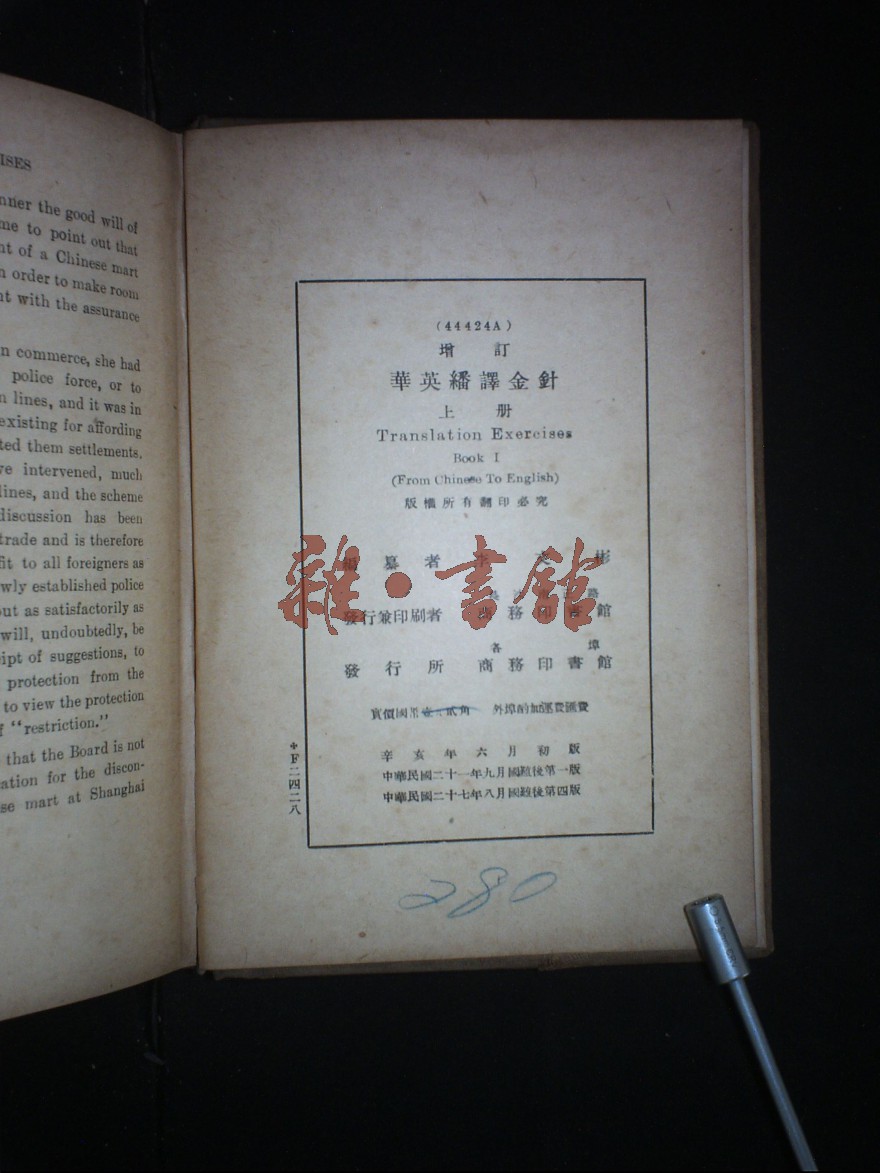 ISES
nner the good will of
me to point out that
nt of a Chinese mart
n order to make room
nt with the assurance
n commerce, she had
police force, or to
n lines, and it was in
existing for affording
ted them settlements,
ve intervened, much
lines, and the scheme
discussion has been
trade and is therefore
fit to all foreigners as
wly established police
out as satisfactorily as
will, undoubtedly, be
ipt of suggestions, to
protection from the
to view the protection
f "restriction."
that the Board is not
ation for the discon-
se mart at Shanghai
(44424A)
增訂
華英繙譯金針
上册
Translation Exercises
Book I
(From Chinese To English)
版權所有翻印必究
編纂者 李文彬
發行兼印刷者 商務印書館
各埠
發行所 商務印書館
實價國幣壹 貳角 外埠酌加運費匯費
辛亥年六月初版
中華民國二十一年九月國難後第一版
中華民國二十七年八月國難後第四版
*F二四二八
雜·書館
280